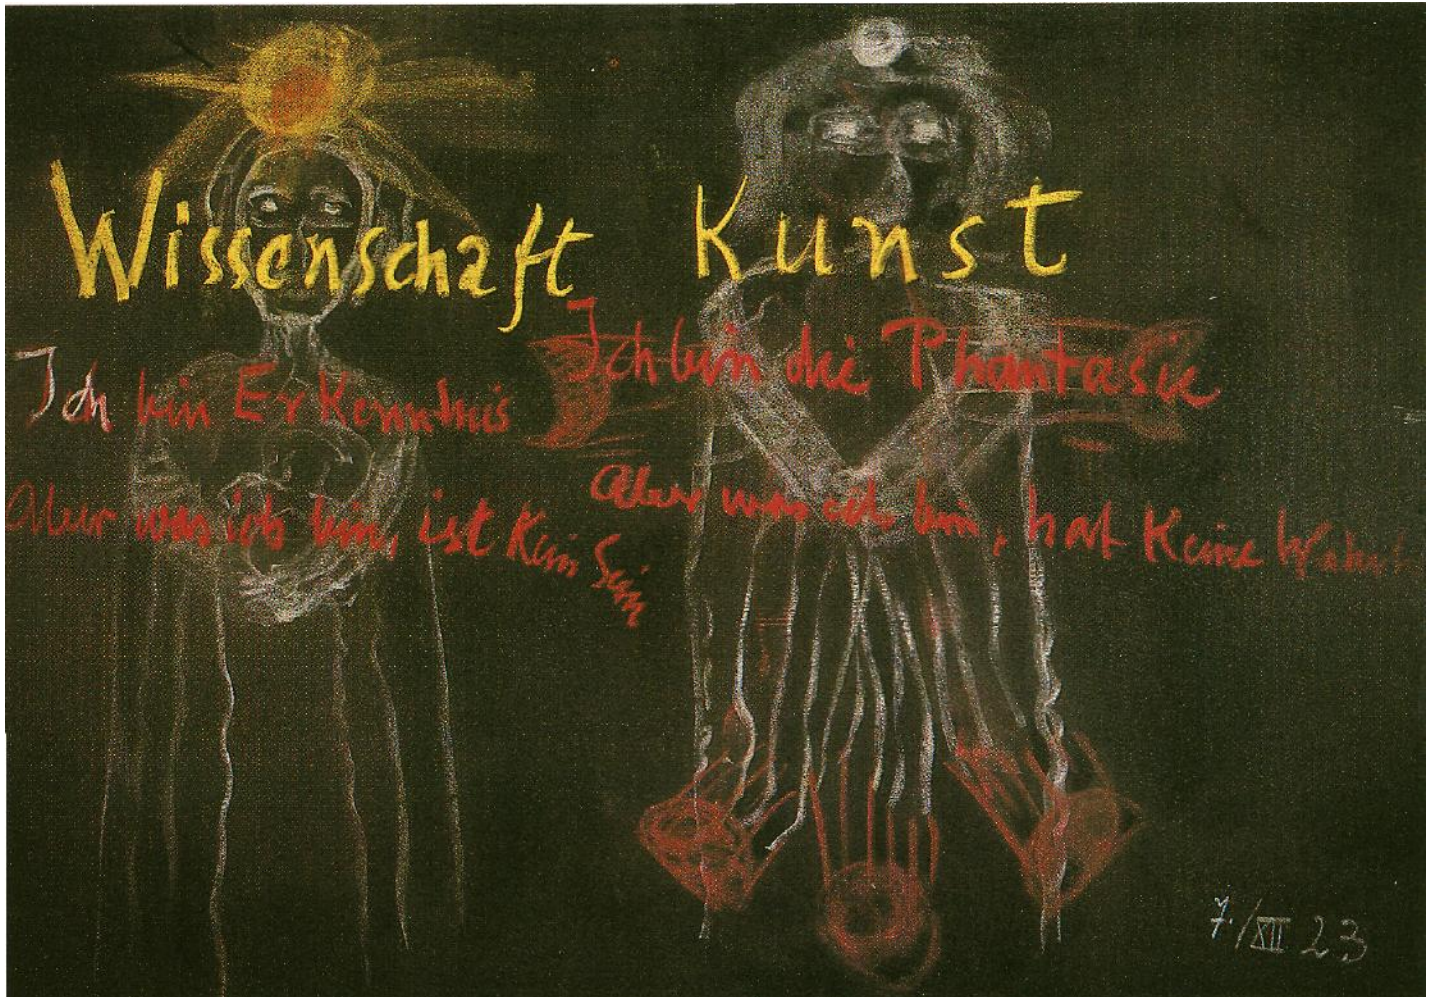 Wissenschaft
Ich bin Erkenntnis
Aber was ich bin, ist kein Sein
Kunst
Ich bin die Phantasie
Aber was ich bin, hat keine Wahrh
7./XII 23